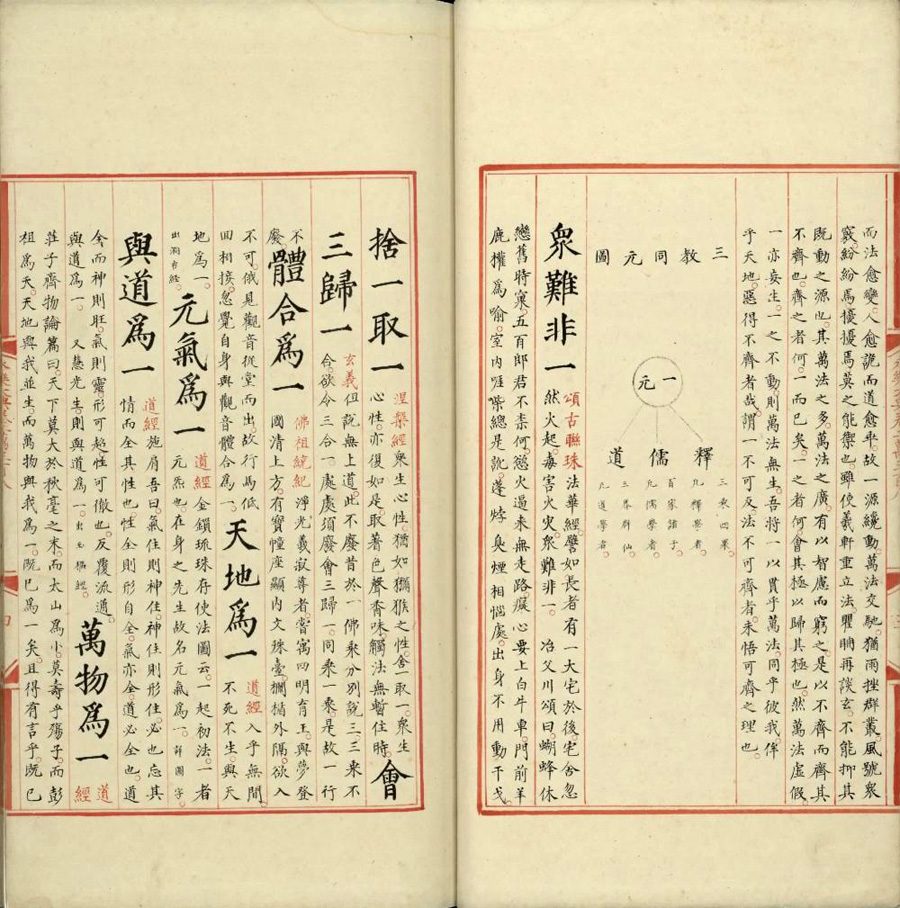 而法愈變人愈詭而道愈乖故一源纔動萬法交馳猶雨挫群叢風號衆
竅紛紛焉擾擾焉莫之能禦也雖使羲軒重立法瞿聃再談玄不能抑其
既動之源也其萬法之多萬法之廣有以智慮而窮之是以不齊而齊其
不齊也齊之者何一而已矣一之者何會其極以歸其極也然萬法虛假
一亦妄生一之不動則萬法無生吾將一以貫乎萬法同乎彼我侔
乎天地惡得不齊者哉謂一不可及法不可齊者未悟可齊之理也
三教同元圖
一元
釋 儒 道
三乘四果
九釋學者
百家諸子
九儒學者
三界群仙
九道學者
衆難非一 頌古聯珠法華經譬如長者有一大宅於後宅舍忽
然火起毒害火災衆難非一 冶父川頌曰蝴蜂休
戀舊時窠五百郎君不柰何慾火過來無走路癡心要上白牛車門前羊
鹿權為喻室內啀喍總是訛蓬㶿臭煙相惱處出身不用動干戈
捨一取一 涅槃經衆生心性猶如獼猴之性舍一取一衆生
心性亦復如是取著色聲香味觸法無暫住時 會
三歸一 玄義但說無上道此不廢昔於一佛乘分別說三三來不
合欲令三合一處處須廢會三歸一同乘一乘是故一行
不
廢 體合為一 佛祖統紀淨光義寂尊者嘗寓四明育王與夢登
國清上方有寶幢座顯內文殊臺欄楯外隔欲入
不可俄見觀音從堂而出故行馬低
回相接忽覺自身與觀音體合為一 天地為一 道經入乎無間
不死不生與天
地為一
出洞古經 元氣為一 道經金鎖珠珠存使法圖云一起初法一者
元炁也在身之先生故名元氣為一 詳圖字
與道為一 道經施肩吾曰氣住則神住神住則形住必也忘其
情而全其性也性全則形自全氣亦全道必全也道
全而神則旺氣則靈形可超性可徹也反覆流通
與道為一 又慧光生則與道為一 萬物為一 道
經
莊子齊物論篇曰天下莫大於秋毫之末而太山為小莫壽乎殤子而彭
祖為夭天地與我並生而萬物與我為一既已為一矣且得有言乎既已